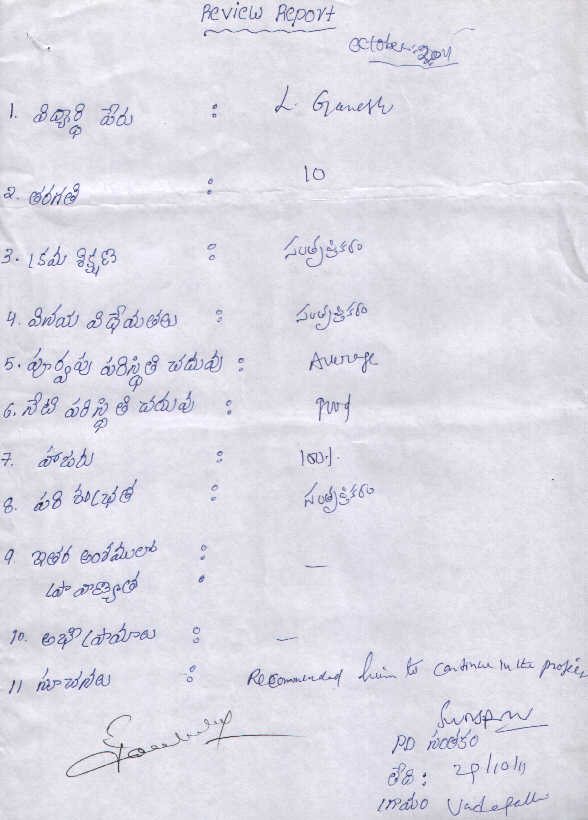 Review Report
October-2011
1. విద్యార్థి పేరు : L. Ganesh
2. తరగతి : 10
3. క్రమ శిక్షణ : సంతృప్తికరం
4. వినయ విధేయతలు : సంతృప్తికరం
5. పూర్వపు పరిస్థితి చదువు : Average
6. నేటి పరిస్థితి చదువు :
7. హాజరు : 100%.
8. పరి శుభ్రత : సంతృప్తికరం
9. ఇతర అంశములలో : —
ప్రావీణ్యత
10. అభిప్రాయాలు : —
11 సూచనలు : Recommended him to continue in the project
PD సంతకం
తేది : 29/10/11
గ్రామం Vadapalli